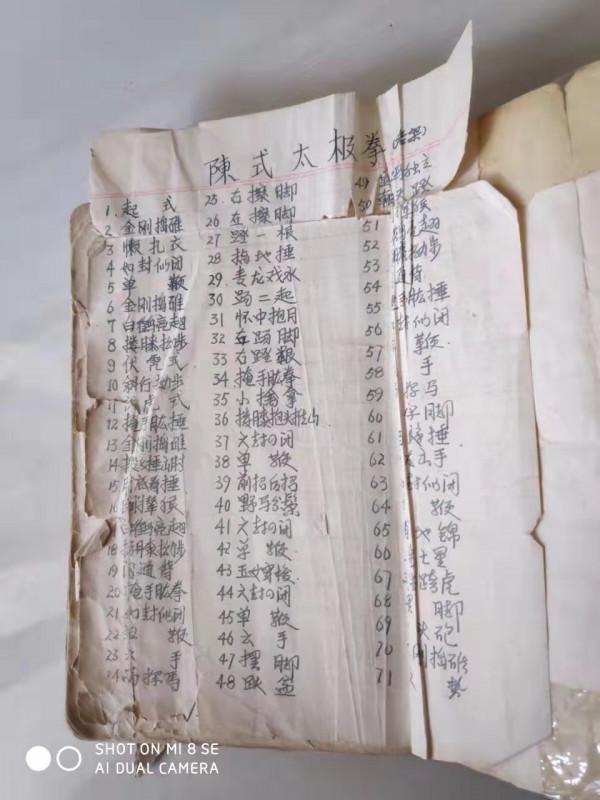 陳式太极拳(老架)
1 起 式
2 金刚捣碓
3 懒扎衣
4 如封似闭
5 单 鞭
6 金刚捣碓
7 白鹤亮翅
8 搂膝拗步
9 伏虎式
10 斜行拗步
11 虎式
12 肱捶
13 金刚捣碓
14 捶
15 底看捶
16 倒撵猴
17 亮翅
18 拗步
19 通背
20 掩手肱拳
21 如封似闭
22 鞭
23 手
24 高探马
25 右擦脚
26 左擦脚
27 蹬一根
28 指地捶
29 青龙戏水
30 踢二起
31 怀中抱月
32 左踢脚
33 右蹬跟
34 掩手肱拳
35 小擒拿
36 搂膝抱头推山
37 六封四闭
38 单 鞭
39 前招后招
40 野马分鬃
41 六封四闭
42 单 鞭
43 玉女穿梭
44 六封四闭
45 单 鞭
46 云 手
47 摆 脚
48 跌岔
49 独立
50
51 翅
52 拗步
53 通背
54 肱捶
55 似闭
56 鞭
57 手
58 马
59 字脚
60 捶
61 手
62 封似闭
63 鞭
64 地锦
65 七星
66 跨虎
67 脚
68 头砲
69 刚捣碓
70 势
71
SHOT ON MI 8 SE
AI DUAL CAMERA